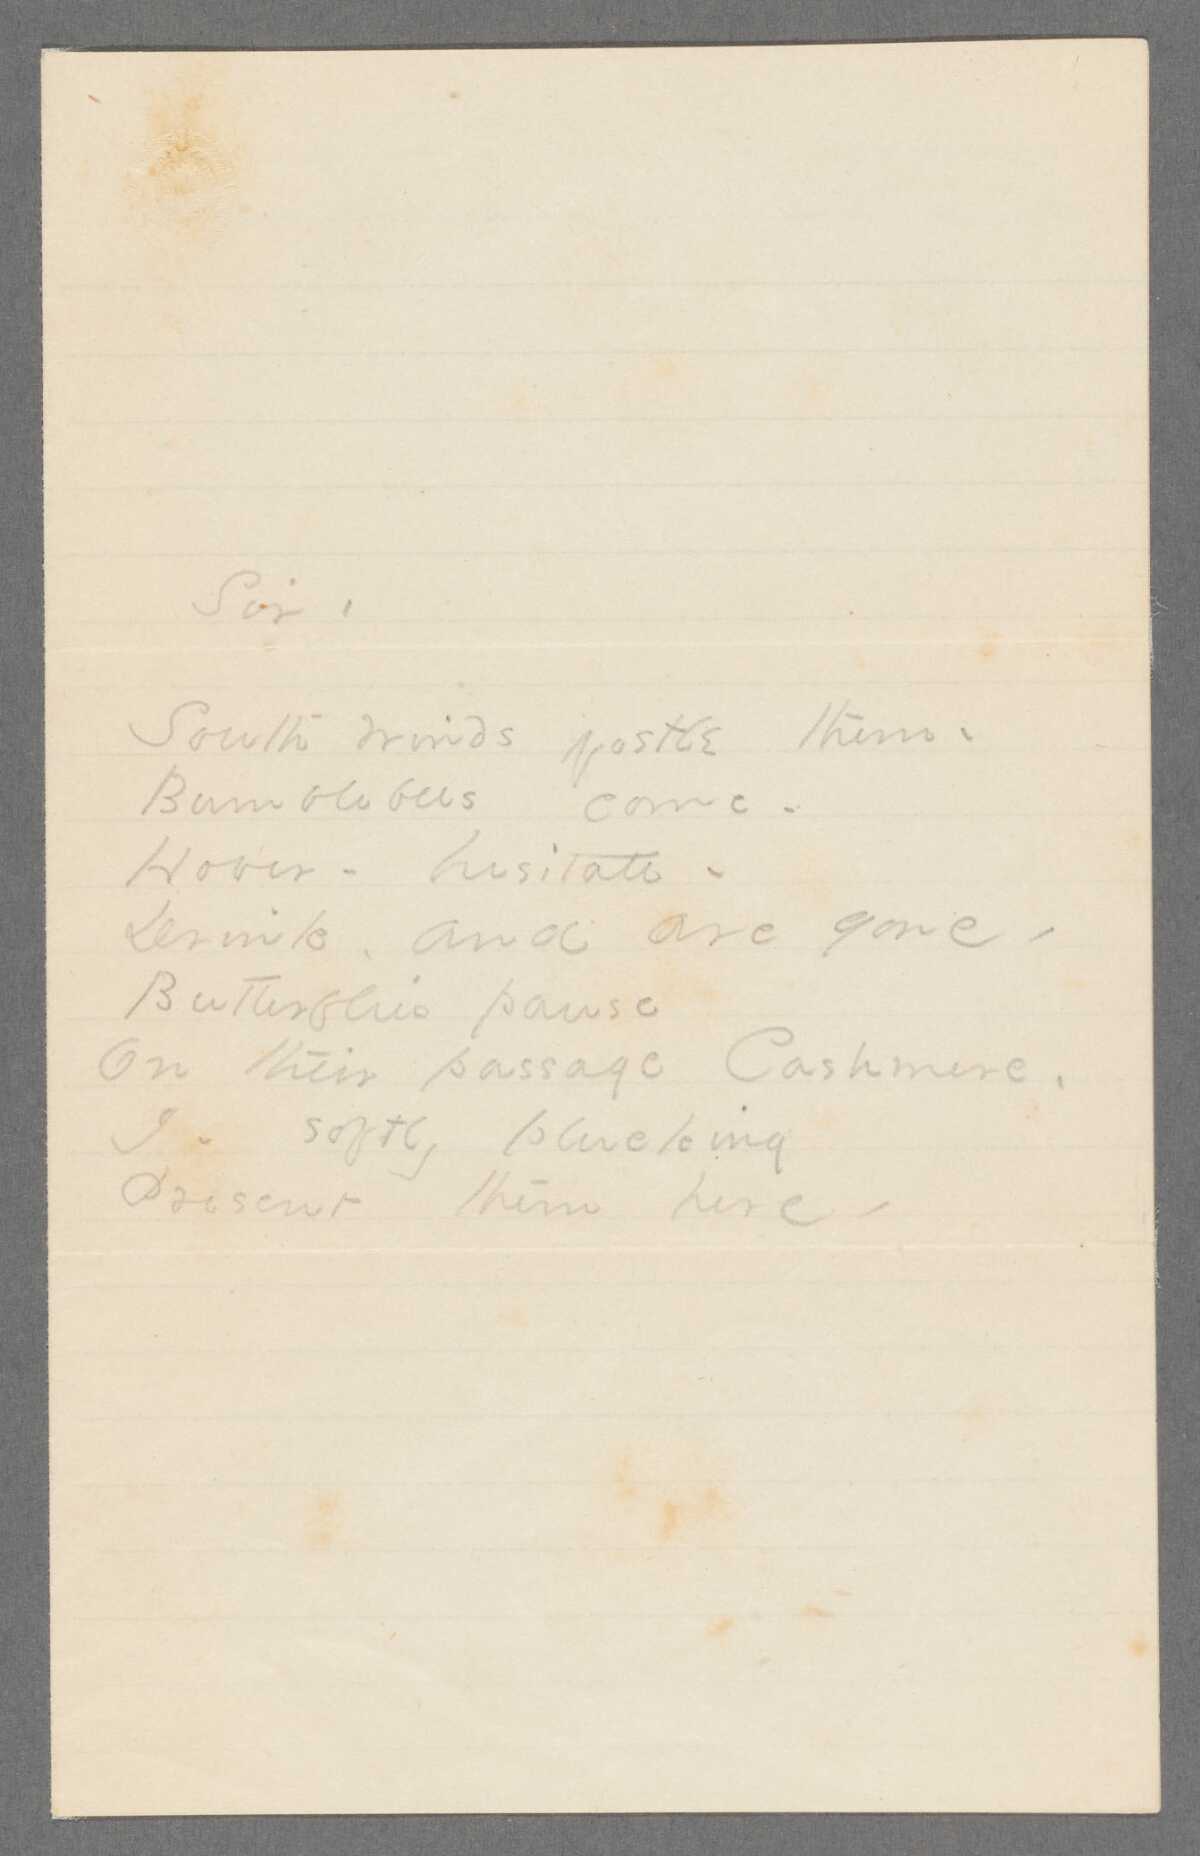 Sir.
South winds jostle them.
Bumblebees come -
Hover - hesitate -
Drink. and are gone -
Butterflies pause
On their passage Cashmere.
I - softly plucking
Present them here -